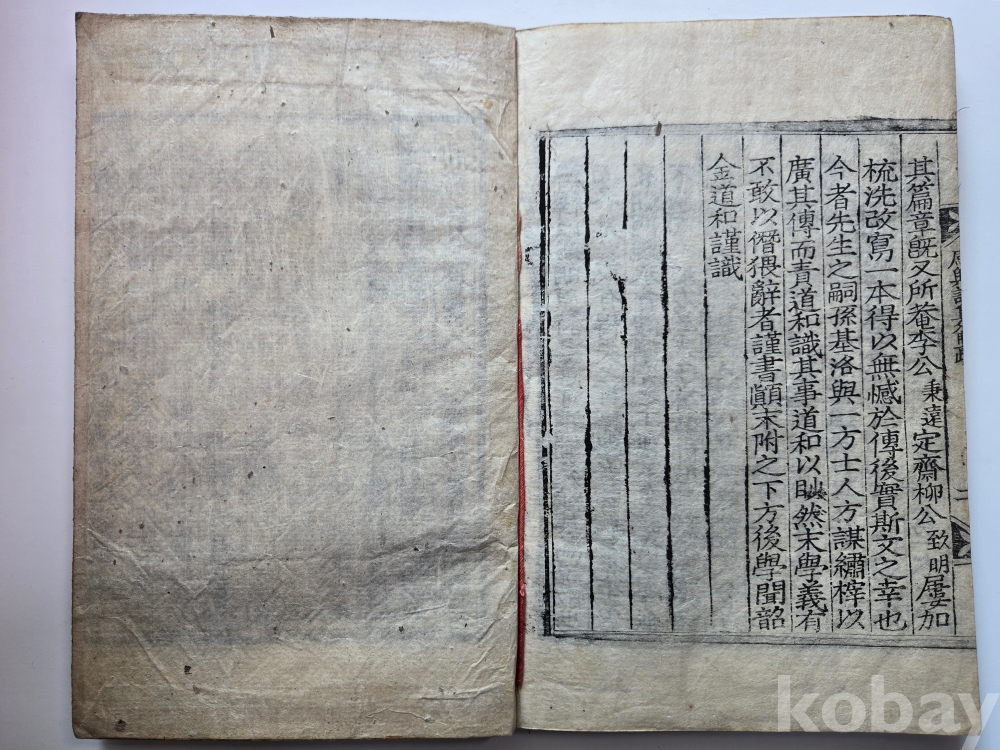 其篇章旣又所菴李公秉遠定齋柳公致明屢加
梳洗改寫一本得以無憾於傳後實斯文之幸也
今者先生之嗣孫基洛與一方士人方謀繡梓以
廣其傳而責道和識其事道和以眇然末學義有
不敢以僭猥辭者謹書顚末附之下方後學聞韶
金道和謹識
二
kobay